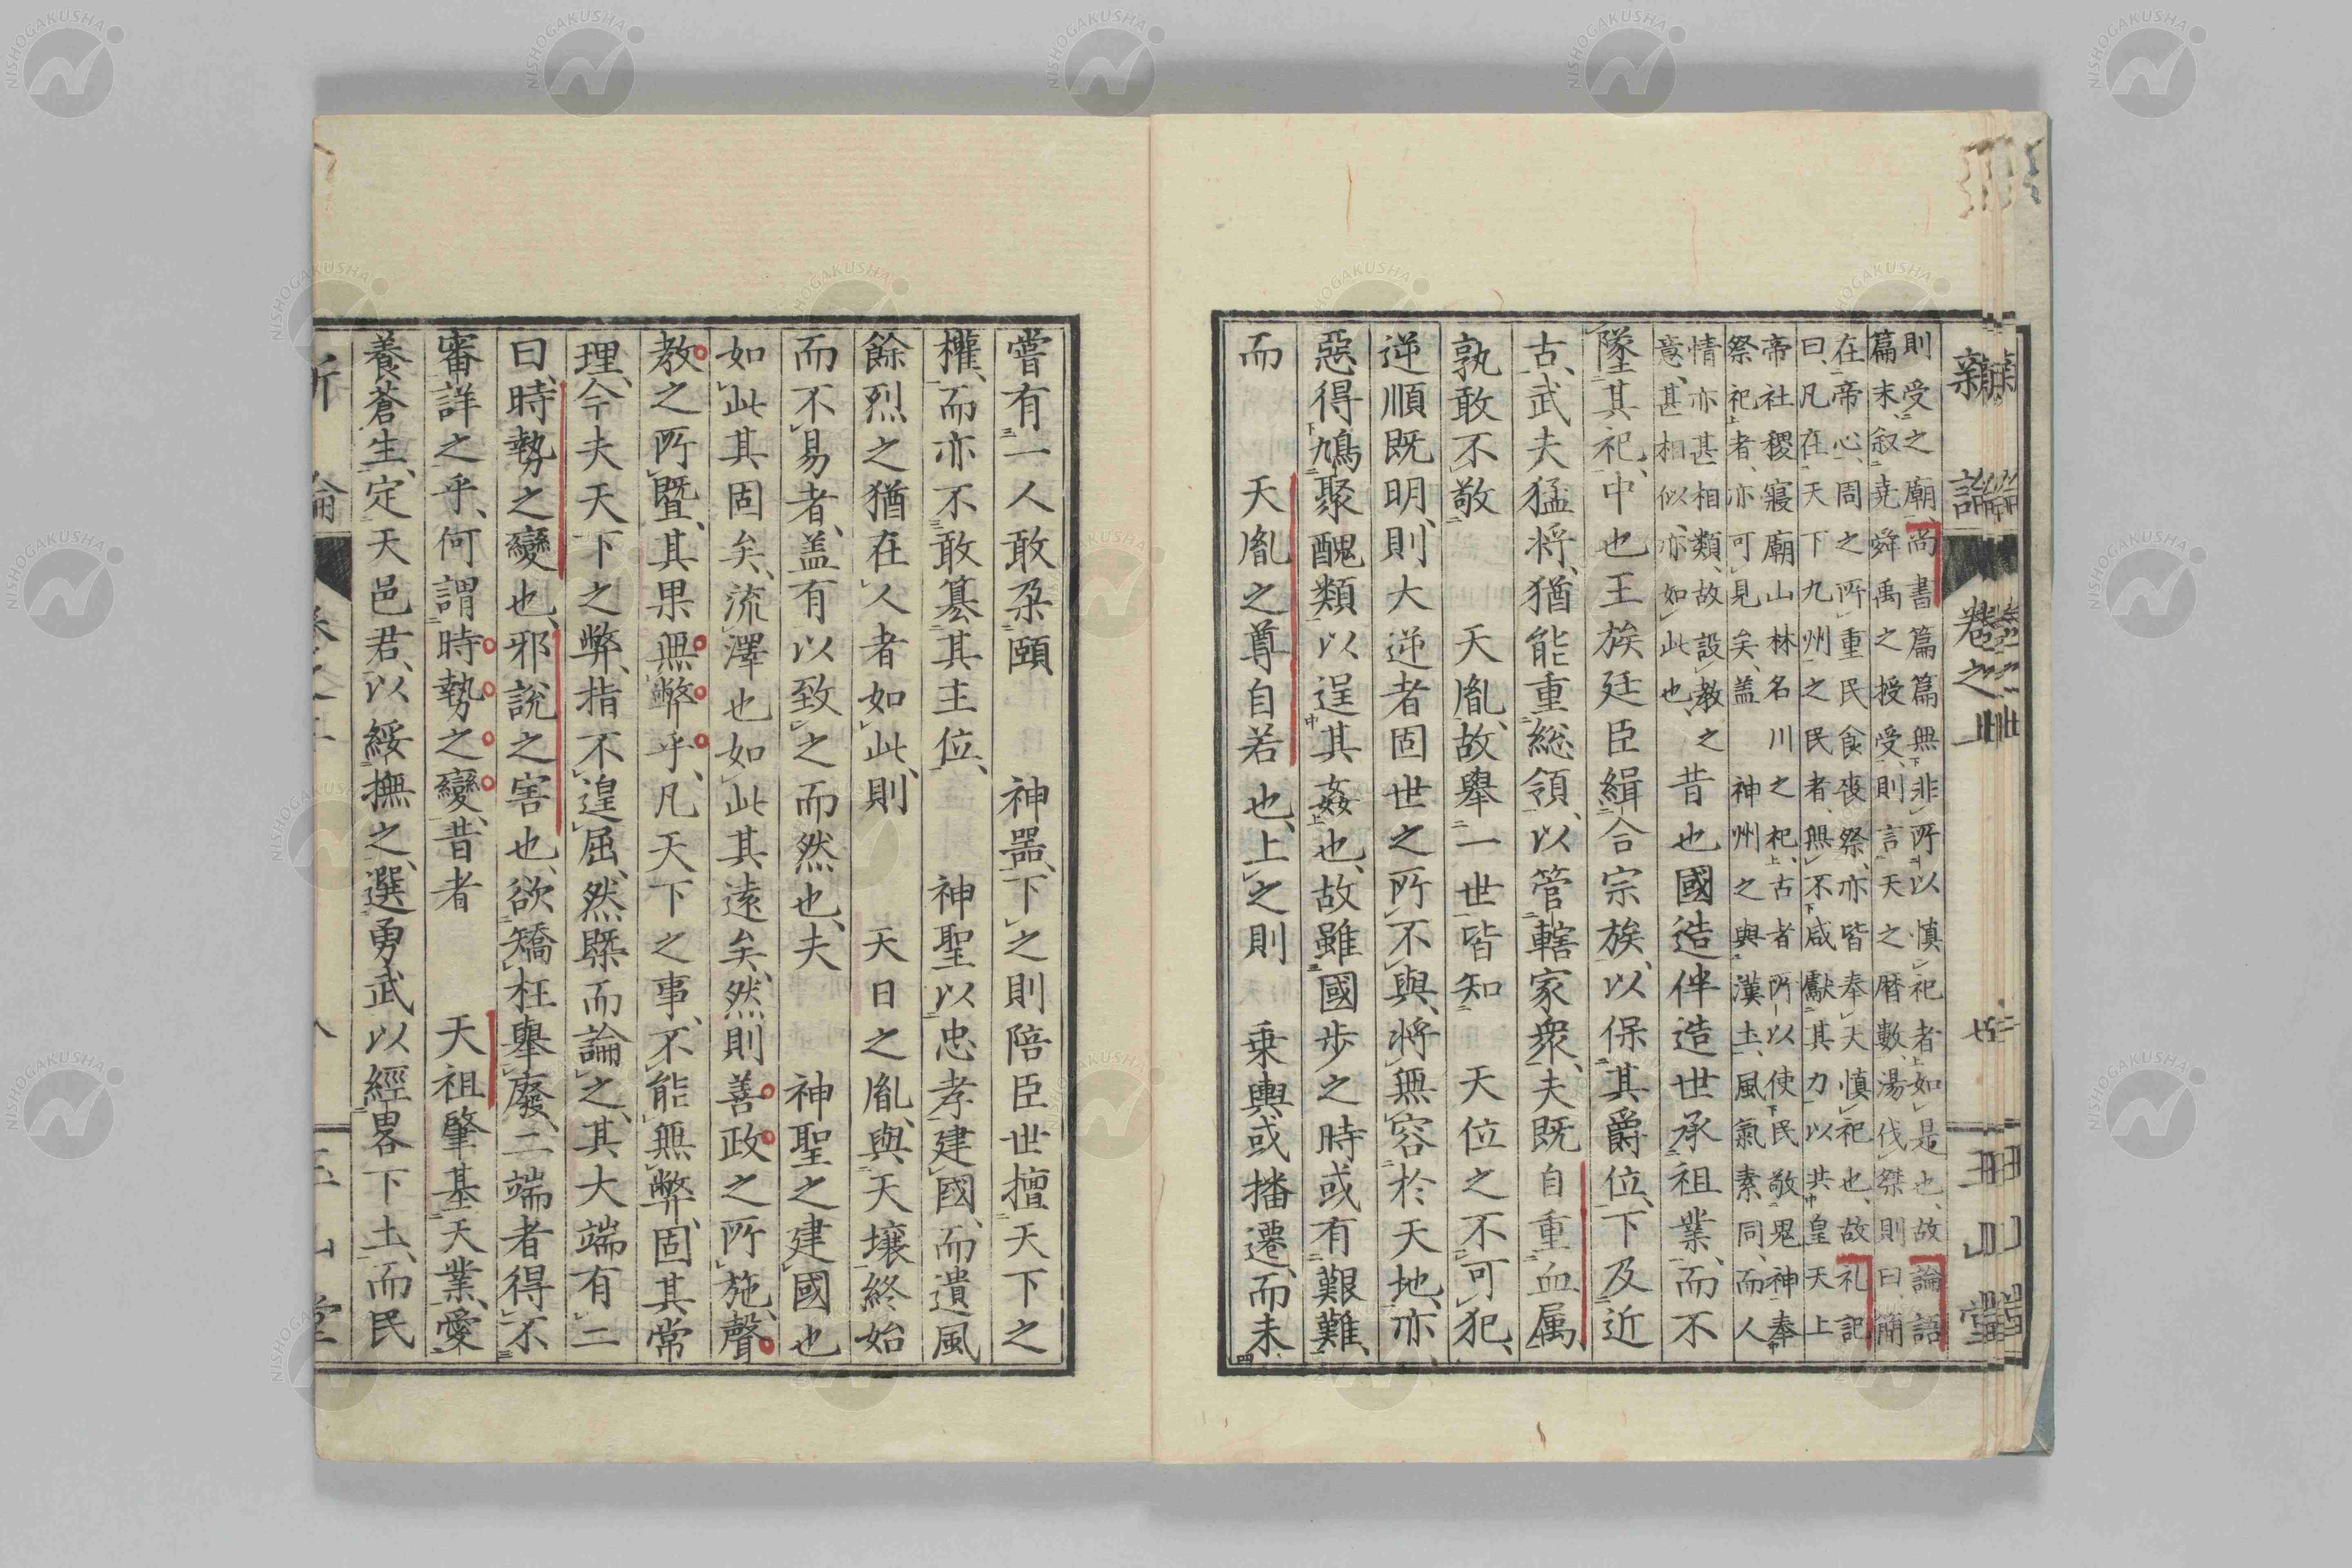 新論 卷之上 七 玉山堂
則受之廟尚書篇篇無非所以慎祀者如是也故論語
篇末叙堯舜禹之授受則言天之曆數湯伐桀則曰簡
在帝心周之所重民食喪祭亦皆奉天慎祀也故礼記
曰凡在天下九州之民者無不咸獻其力以共皇天上
帝社稷寢廟山林名川之祀古者所以使民敬鬼神奉
祭祀者亦可見矣盖神州之與漢土風氣素同而人
情亦甚相類故設教之
意甚相似亦如此也
昔也國造伴造世承祖業而不
墜其祀中也王族廷臣緝合宗族以保其爵位下及近
古武夫猛将猶能重総領以管轄家衆夫既自重血属
孰敢不敬 天胤故舉一世皆知 天位之不可犯
逆順既明則大逆者固世之所不與将無容於天地亦
惡得鳩聚醜類以逞其姦也故雖國步之時或有艱難
而 天胤之尊自若也上之則 乗輿或播遷而未
嘗有一人敢朶頤 神器下之則陪臣世擅天下之
權而亦不敢簒其主位 神聖以忠孝建國而遺風
餘烈之猶在人者如此則 天日之胤與天壤終始
而不易者盖有以致之而然也夫 神聖之建國也
如此其固矣流澤也如此其遠矣然則善政之所施聲
教之所曁其果無弊乎凡天下之事不能無弊固其常
理今夫天下之弊指不遑屈然槩而論之其大端有二
曰時勢之變也邪說之害也欲矯枉舉廢二端者得不
審詳之乎何謂時勢之變昔者 天祖肇基天業愛
養蒼生定天邑君以綏撫之選勇武以經畧下土而民